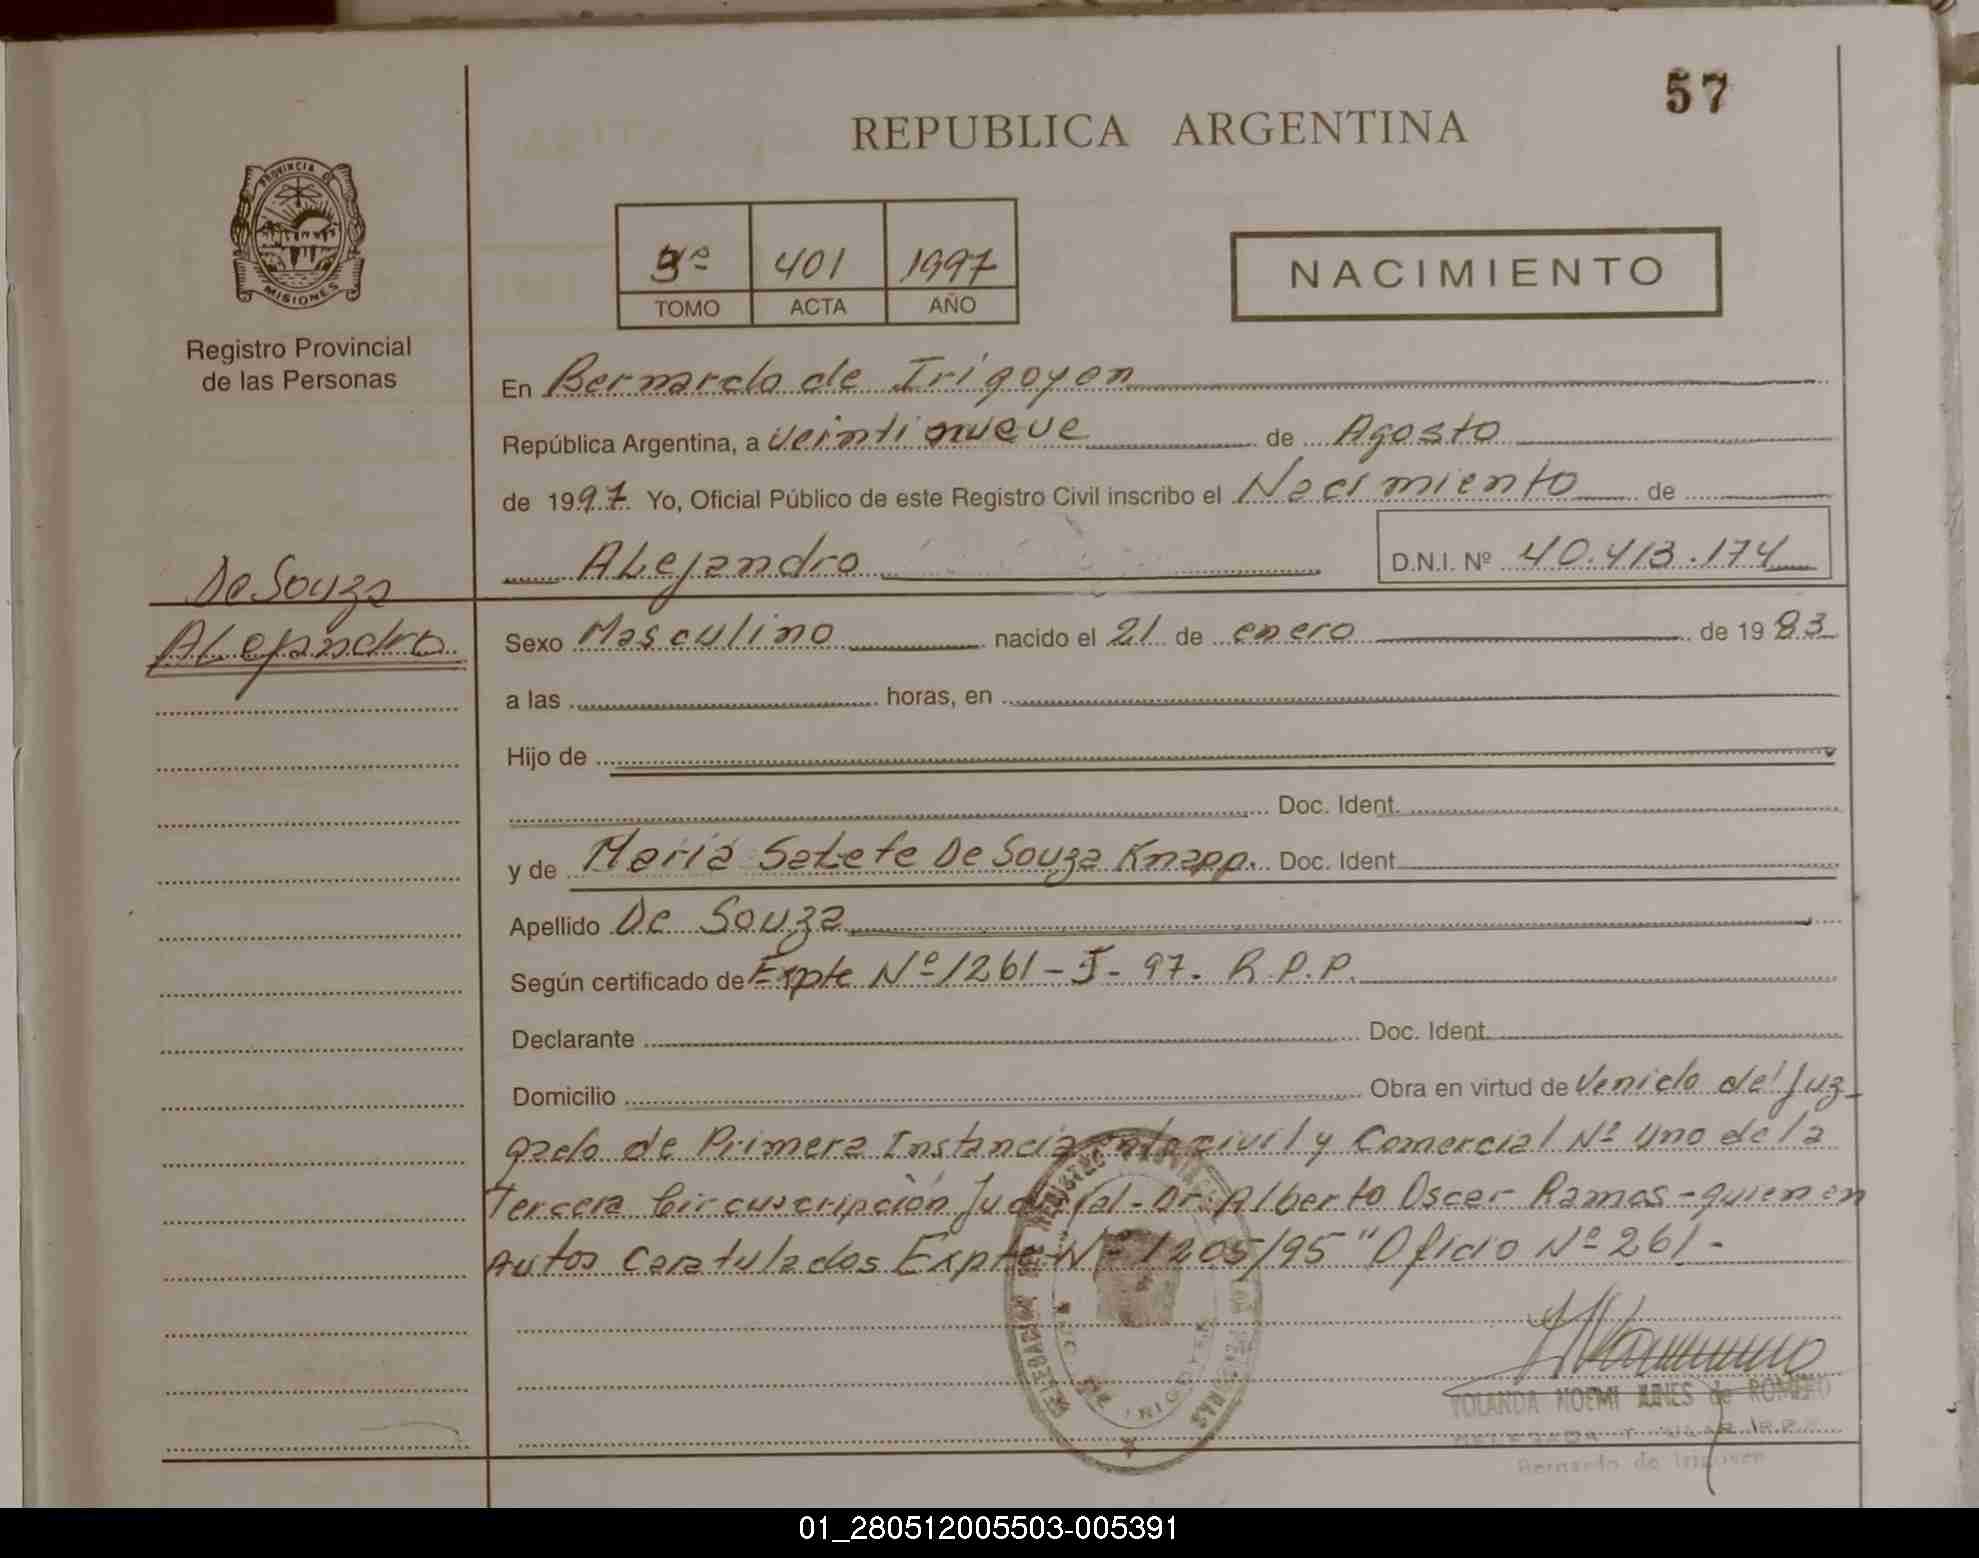 57
REPUBLICA ARGENTINA
PROVINCIA DE
MISIONES
Registro Provincial
de las Personas
3º 401 1997
TOMO ACTA AÑO
NACIMIENTO
En Bernardo de Irigoyen
República Argentina, a veintinueve de Agosto
de 1997 Yo, Oficial Público de este Registro Civil inscribo el Nacimiento de
Alejandro D.N.I. Nº 40.413.174
De Souza
Alejandro
Sexo Masculino nacido el 21 de enero de 1983
a las horas, en
Hijo de
Doc. Ident.
y de Maria Salete De Souza Knapp. Doc. Ident
Apellido De Souza
Según certificado de Expte Nº 1261-J-97. R.P.P.
Declarante Doc. Ident.
Domicilio Obra en virtud de Venido del Juz-
gado de Primera Instancia civil y Comercial Nº Uno de la
Tercera Circuscripción Judicial - Dr. Alberto Oscar Ramos - quien en
Autos Caratulados Expte Nº 1205/95 "Oficio Nº 261-
YOLANDA NOEMI de ROMERO
Bernardo de Irigoyen
01_280512005503-005391